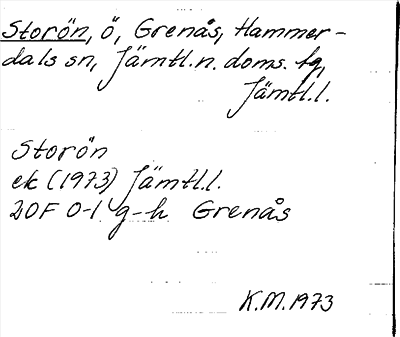 Storön, ö, Grenås, Hammer-
dals sn, Jämtl. n. doms. tg,
Jämtl. l.
Storön
ek (1973) Jämtl. l.
20F 0-1 g-h Grenås
K.M. 1973